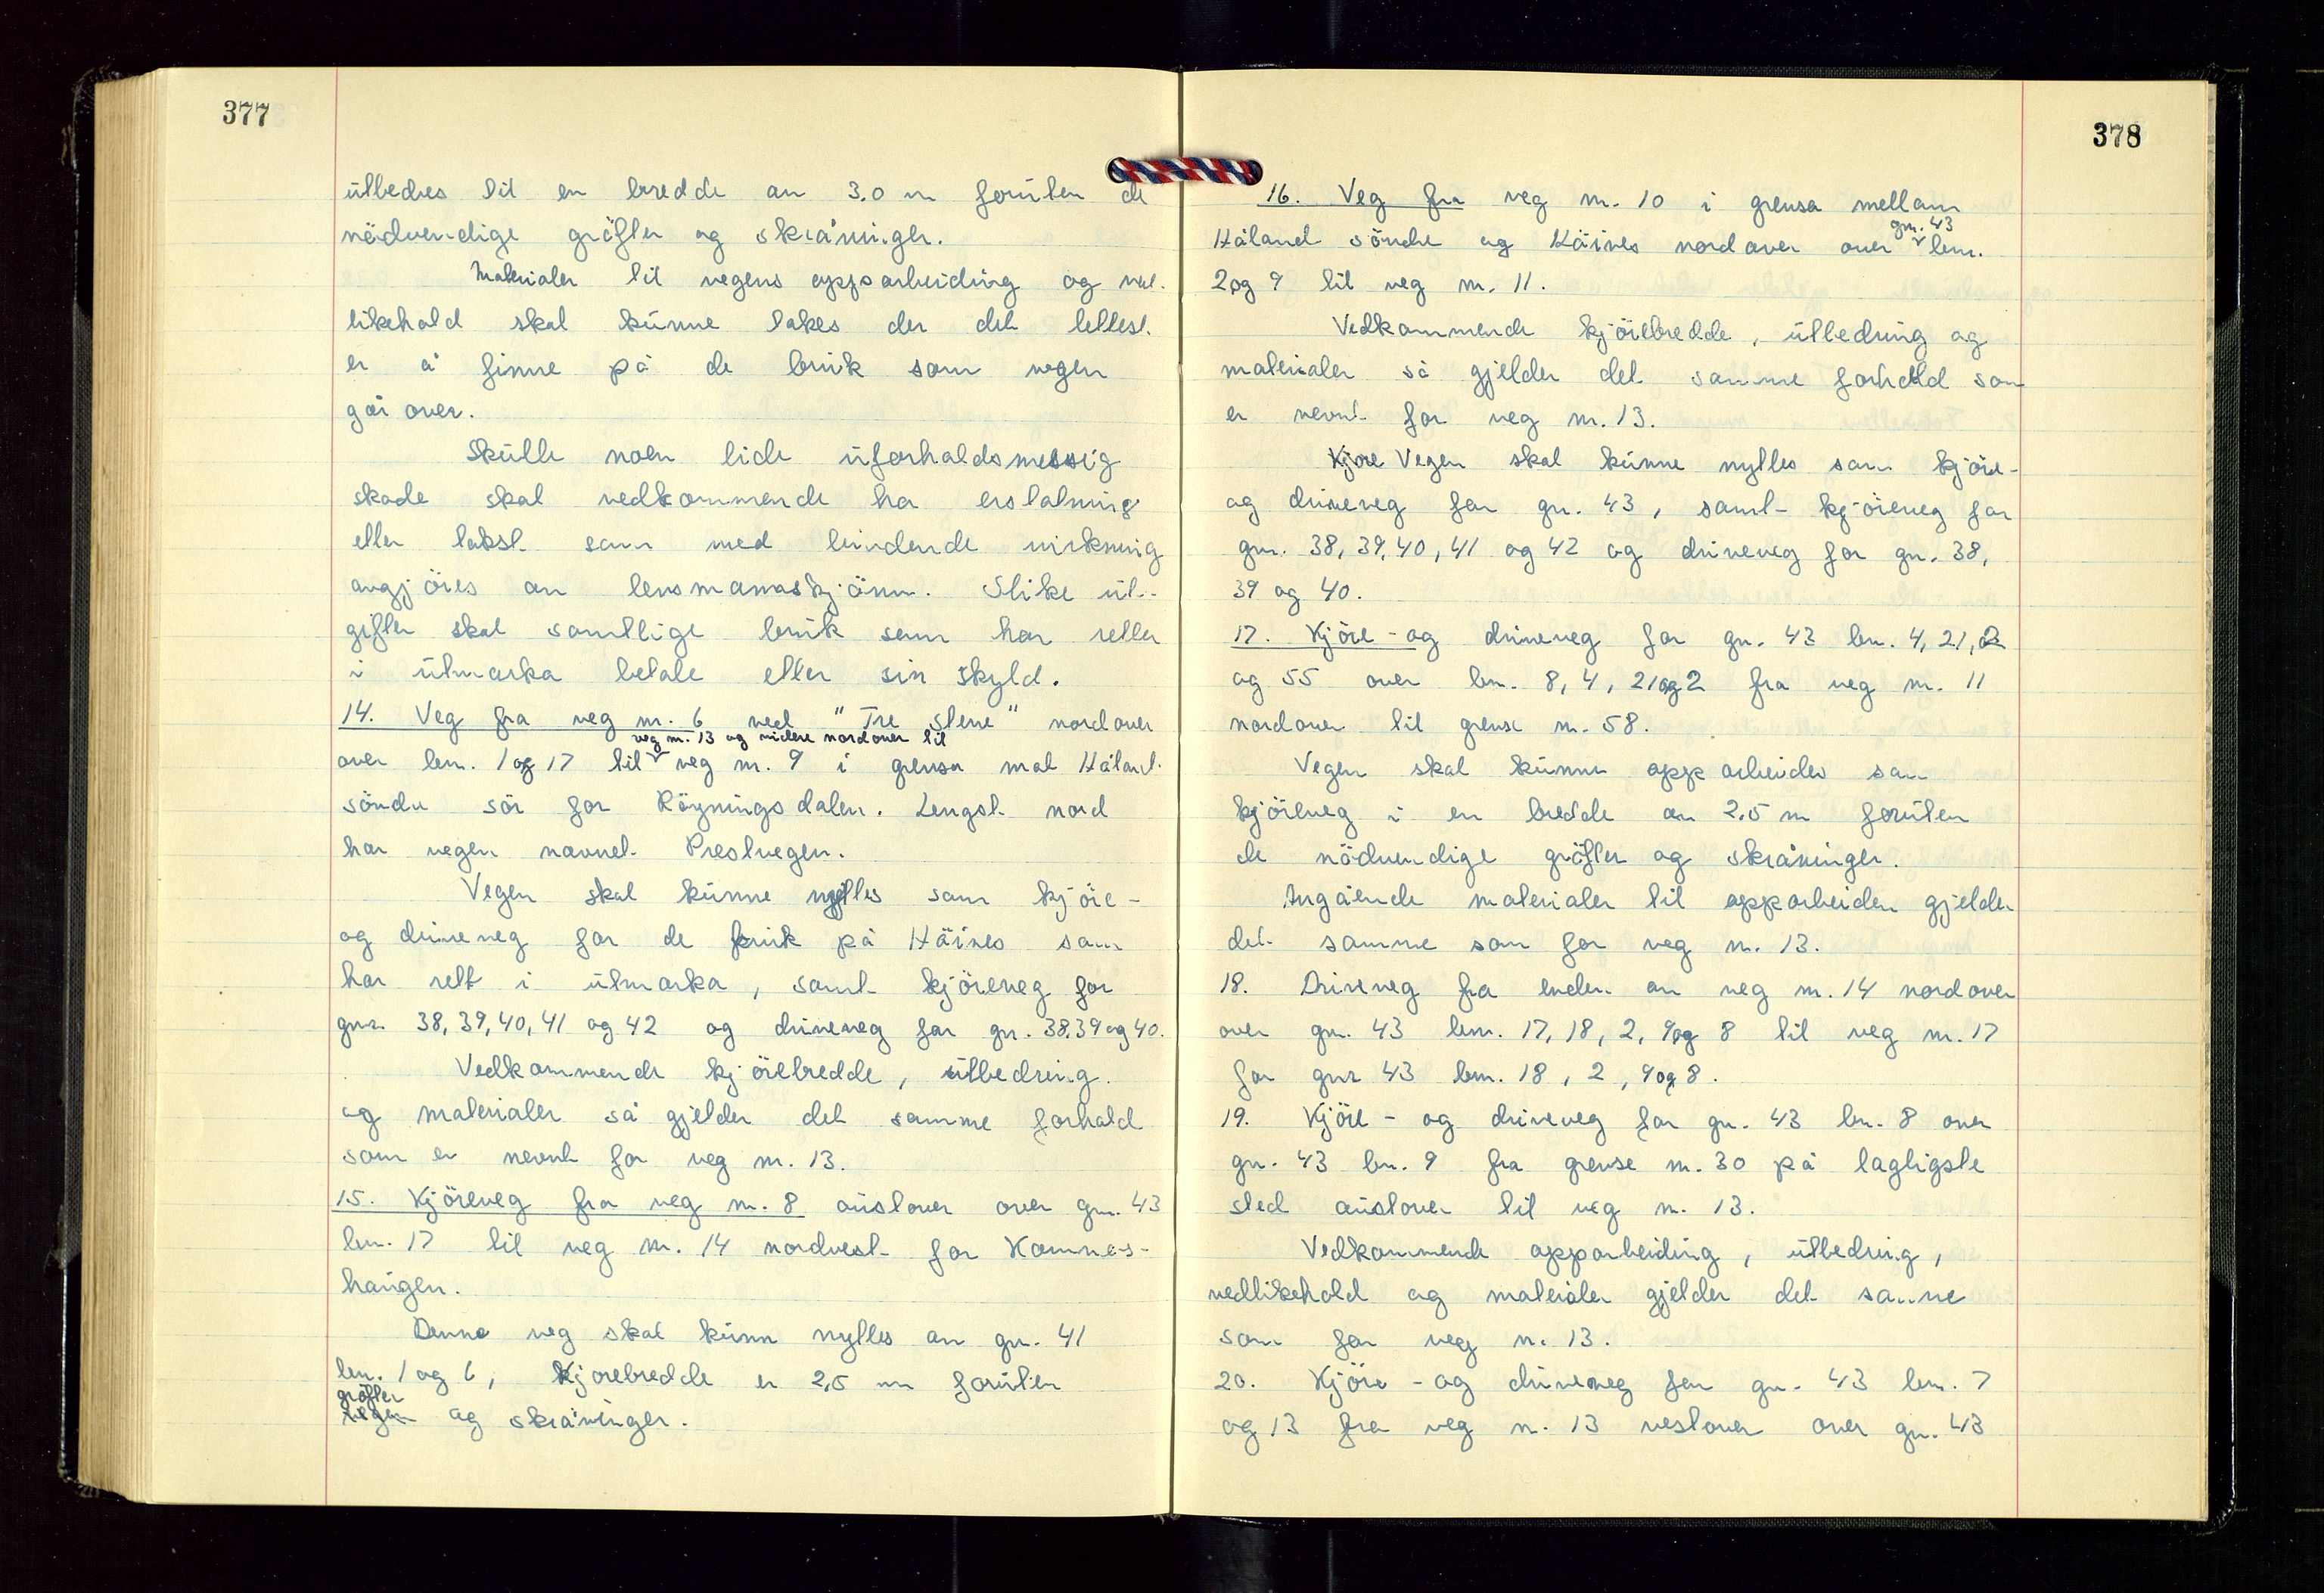 377
utbedres til en bredde av 3.0 m foruten de
nödvendige gröfter og skråninger.
Materialer til vegens opparbeiding og ved-
likehold skal kunne takes der det lettest
er å finne på de bruk som vegen
går over.
Skulle noen lide uforholdsmessig
skade skal vedkommende ha erstatning
eller takst som med bindende virkning
avgjöres av lensmannsskjönn. Slike ut-
gifter skal samtlige bruk som har retter
i utmarka betale etter sin skyld.
14. Veg fra veg nr. 6 ved "Tre stene" nordover
veg nr. 13 og videre nordover til
over bnr. 1 og 17 til veg nr. 9 i grensa mot Håland
söndre sör for Röyningsdalen. Lengst nord
har vegen navnet Prestvegen.
Vegen skal kunne nyttes som kjöre-
og driveveg for de bruk på Håines som
har rett i utmarka, samt kjöreveg for
gnr. 38, 39, 40, 41 og 42 og driveveg for gnr. 38, 39 og 40.
Vedkommende kjörebredde, utbedring
og materialer så gjelder det samme forhold
som er nevnt for veg nr. 13.
15. Kjöreveg fra veg nr. 8 austover over gnr. 43
bnr. 17 til veg nr. 14 nordvest for Kamnes-
haugen.
Denne veg skal kunn nyttes av gnr. 41
bnr. 1 og 6, Kjorebredde er 2,5 m foruten
gröfter
vegen og skråninger.
378
16. Veg fra veg nr. 10 i grensa mellom
gnr. 43
Håland söndre og Håines nordover over bnr.
2 og 9 til veg nr. 11.
Vedkommende kjörebredde, utbedring og
materialer så gjelder det samme forhold som
er nevnt for veg nr. 13.
Kjore Vegen skal kunne nyttes som kjöre-
og driveveg for gnr. 43, samt kjöreveg for
gnr. 38, 39, 40, 41 og 42 og driveveg for gnr. 38,
39 og 40.
17. Kjöre- og driveveg for gnr. 43 bnr. 4, 21, 2
og 55 over bnr. 8, 4, 21 og 2 fra veg nr. 11
nordover til grense nr. 58.
Vegen skal kunne opparbeides som
kjöreveg i en bredde av 2,5 m foruten
de nödvendige gröfter og skråninger.
Angående materialer til opparbeiden gjelder
det samme som for veg nr. 13.
18. Driveveg fra enden av veg nr. 14 nordover
over gnr. 43 bnr. 17, 18, 2, 9 og 8 til veg nr. 17
for gnr 43 bnr. 18, 2, 9 og 8.
19. Kjöre- og driveveg for gnr. 43 bnr. 8 over
gnr. 43 bnr. 9 fra grense nr. 30 på lagligste
sted austover til veg nr. 13.
Vedkommende opparbeiding, utbedring,
vedlikehold og materialer gjelder det samme
som for veg nr. 13.
20. Kjöre- og driveveg for gnr. 43 bnr. 7
og 13 fra veg nr. 13 vestover over gnr. 43